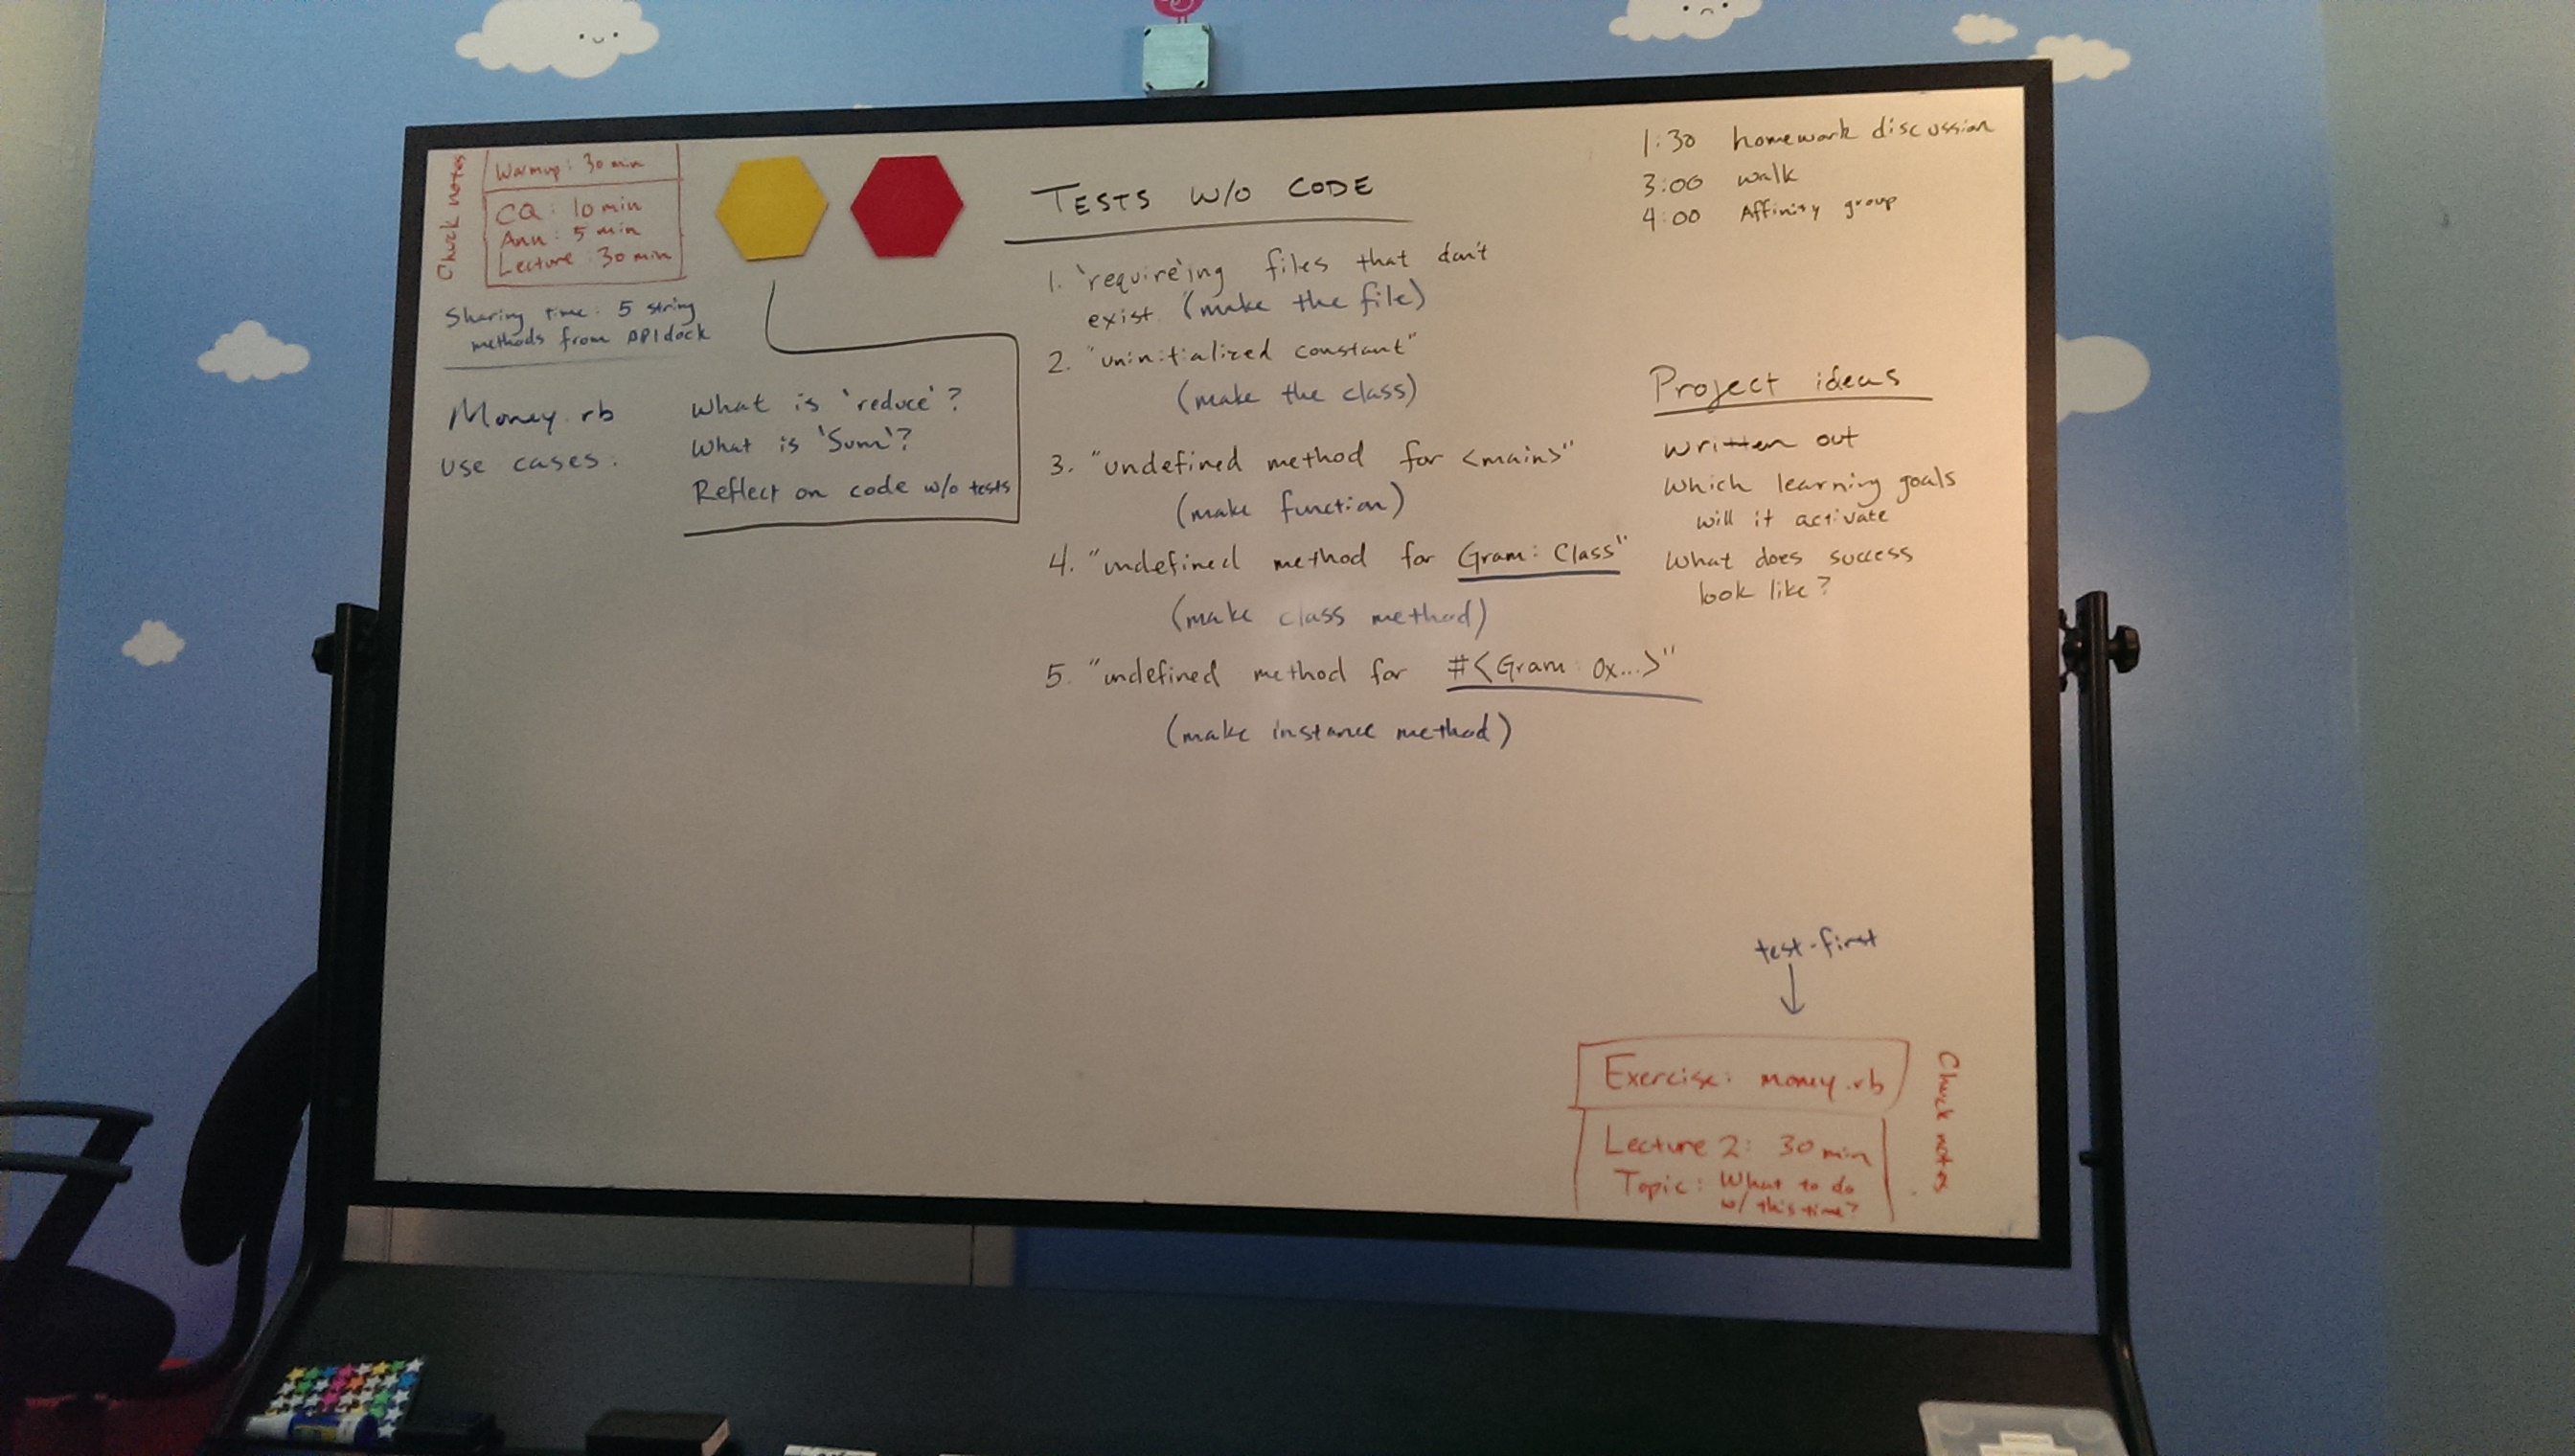 Chuck notes
Warmup: 30 min
CQ: 10 min
Ann: 5 min
Lecture: 30 min
Sharing time: 5 string
methods from APIdock
Money.rb
use cases:
What is 'reduce'?
What is 'Sum'?
Reflect on code w/o tests
TESTS W/O CODE
1. 'require'ing files that don't
exist. (make the file)
2. "uninitialized constant"
(make the class)
3. "undefined method for <main>"
(make function)
4. "undefined method for Gram: Class"
(make class method)
5. "undefined method for #<Gram: 0x...>"
(make instance method)
1:30 homework discussion
3:00 walk
4:00 Affinity group
Project ideas
written out
Which learning goals
will it activate
What does success
look like?
test-first
Exercise: money.rb
Lecture 2: 30 min
Topic: What to do
w/ this time?
Chuck notes